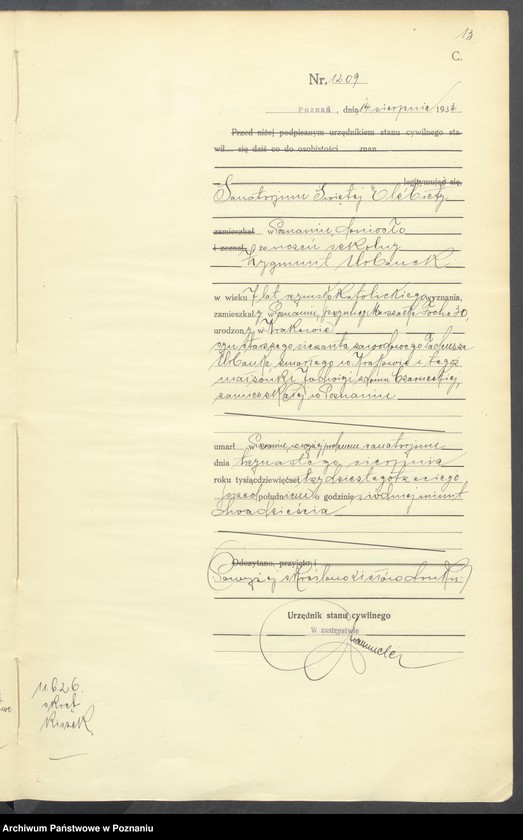 13
C.
Nr. 1209
Poznań, dnia 14 sierpnia 1933
Przed niżej podpisanym urzędnikiem stanu cywilnego sta-
wił się dziś co do osobistości znan
legitymując się,
Sanatorjum Świętej Elżbiety
zamieszkał w Poznaniu, doniosło
i zeznał, że uczeń szkolny
Zygmunt Urbanek
w wieku 7 lat, rzymskokatolickiego wyznania,
zamieszkały w Poznaniu, przy ulicy Marszałka Focha 30,
urodzony w Krakowie
syn starszego sierżanta zawodowego Tadeusza
zmarłego w Krakowie i tegoż
małżonki Jadwigi z domu Czarneckiej,
zamieszkałej w Poznaniu
umarł w Poznaniu, w wyżej sanatorjum
dnia trzynastego sierpnia
roku tysiącdziewięćset trzydziestego trzeciego
przed południem o godzinie siódmej minut
dwadzieścia
Odczytano, przyjęto i
Powyżej skreślono słów druku
Urzędnik stanu cywilnego
W zastępstwie
11.626.
Archiwum Państwowe w Poznaniu